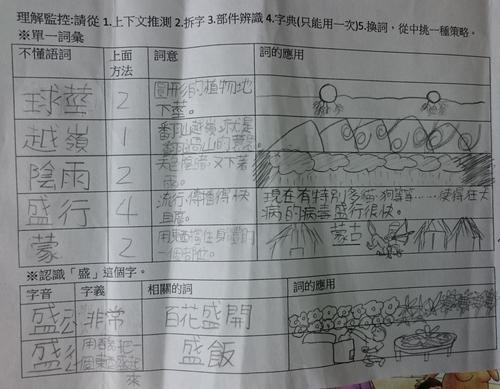 理解監控:請從 1.上下文推測 2.拆字 3.部件辨識 4.字典(只能用一次)5.換詞，從中挑一種策略。
※單一詞彙
不懂語詞 上面方法 詞意 詞的應用
球莖 2 圓形的植物地下莖。
越嶺 1 翻山越嶺
陰雨 2 天色陰暗,又下著雨。
盛行 4 流行,傳播得快且廣。 現在有特別多貓、狗等等……使得狂犬病的病毒盛行很快。
蒙 2 用東西 住身 的一個部位。 蒙古
※認識「盛」這個字。
字音 字義 相關的詞 詞的應用
盛 非常 百花盛開
盛 用 把一個東西 起來 盛飯